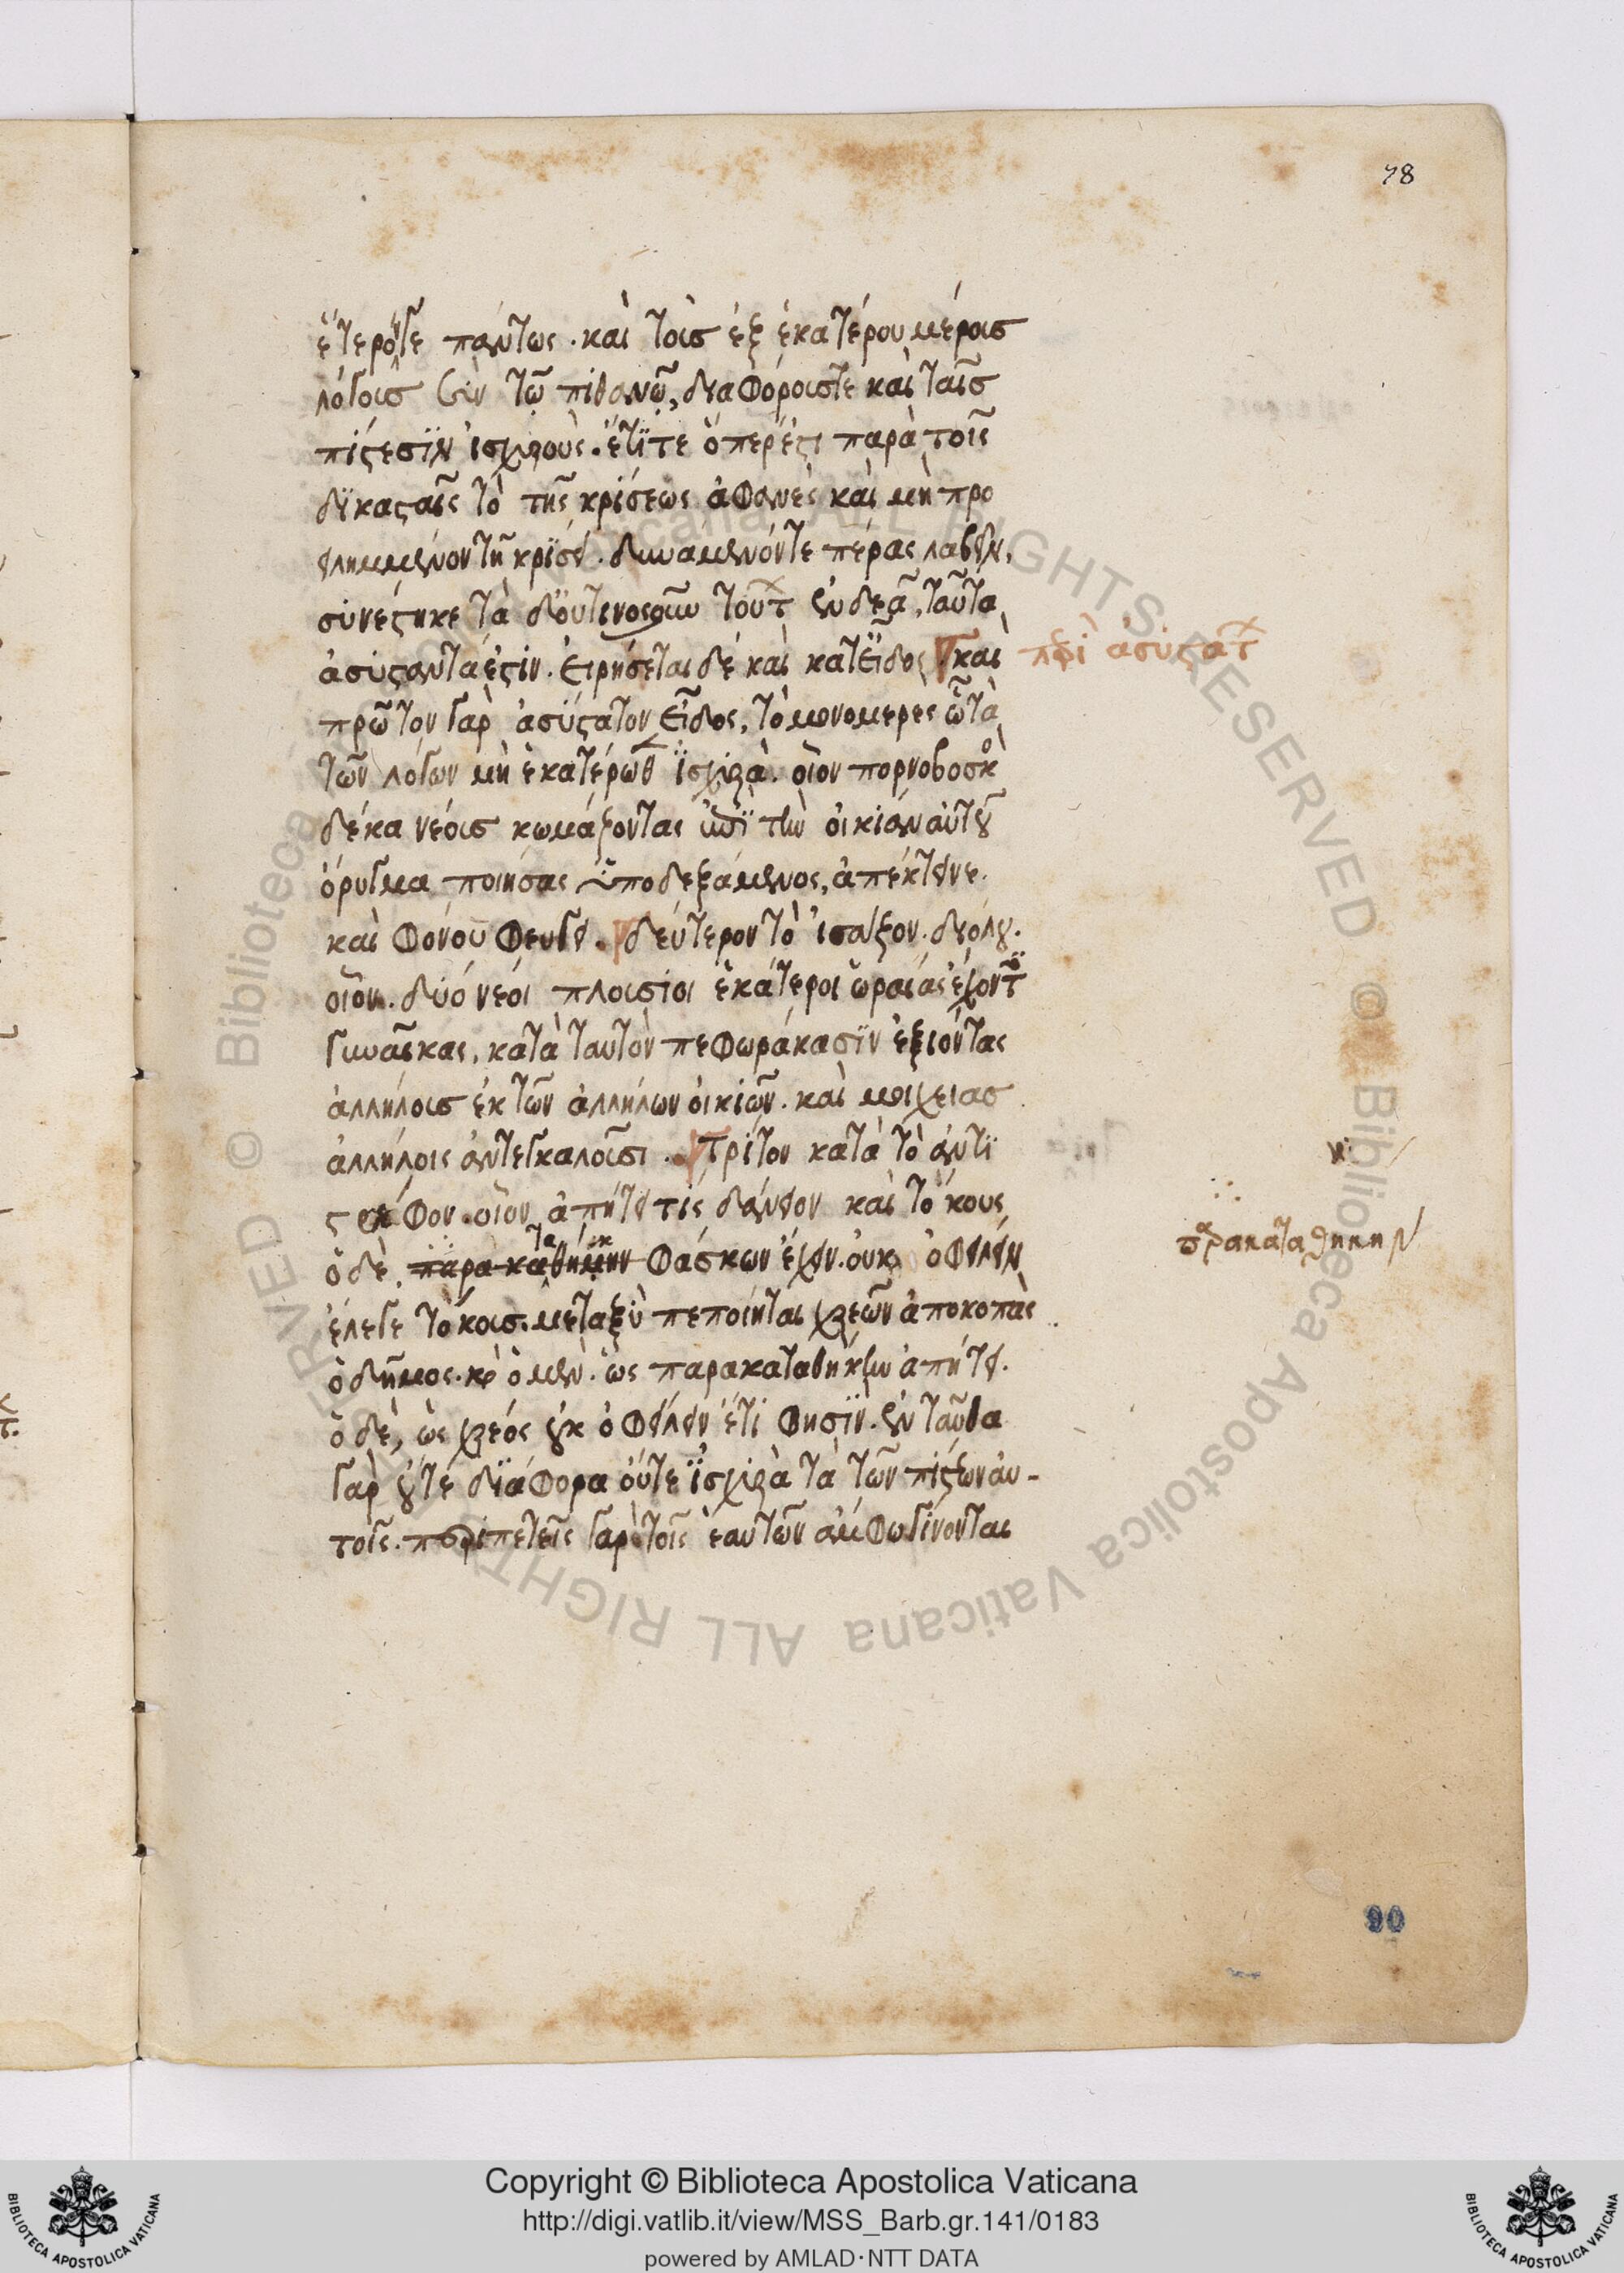 78
ἕτερόν γε πάντως · καὶ τοῖς ἐξ ἑκατέρου μέροις
λόγοις σὺν τῷ πιθανῷ, διαφόροις τε καὶ ταῖς
πίστεσιν ἰσχυροὺς. ἔτι τε ὅπερ ἐστι παρὰ τοῖς
δικασταῖς τὸ τῆς κρίσεως ἀφανὲς καὶ μὴ προ
ειλημμένον τῇ κρίσει. δυνάμενόν τε πέρας λαβεῖν,
συνέστηκε τὰ δ' οὕτινοσοῦν τούτ ἐνδεᾶ, ταῦτα
ἀσύσταντα ἐστιν. εἰρήσεται δὲ καὶ κατ εἶδος καὶ
περὶ ἀσυστάτ
πρῶτον γὰρ ἀσύστατον εἶδος, τὸ μονομερὲς ὧ τὰ
τῶν λόγων μὴ ἑκατέρωθ ἰσχυρά. οἷον πορνοβοσκὸ
δέκα νέοις κωμάζοντας ἐπὶ τὴν οἰκίαν αὐτοῦ
ὄρυγμα ποιήσας ὑποδεξάμενος, ἀπέκτεινε.
καὶ φόνου φευγει. δεύτερον τὸ ἰσάζον. διόλου.
οἷον. δύο νέοι πλούσιοι ἑκάτεροι ὡραίας ἔχοντ
γυναῖκας, κατὰ ταυτὸν πεφωράκασιν ἐξιόντας
ἀλλήλοις ἐκ τῶν ἀλλήλων οἰκιῶν. καὶ μοιχείας
ἀλλήλοις ἀντεγκαλοῦσι. Τρίτον κατὰ τὸ ἀντι
στρέφον. οἷον ἀπήτει τίς δάνειον καὶ τόκους
ὁ δὲ. παρα καθήμην φάσκων ἔχειν. οὐκ ὀφείλειν
παρακαταθηκην
ἔλεγε τόκοις. μεταξὺ πεποίηται χρεῶν ἀποκοπὰς
ὁ δῆμος. καὶ ὁ μὲν. ὡς παρακαταθήκην ἀπήτει.
ὁ δὲ, ὡς χρέος οὐκ ὀφείλειν ἔτι φησὶν. ἐνταῦθα
γὰρ οὔτε διάφορα οὔτε ἰσχυρὰ τὰ τῶν πίστεων αὐ-
τοῖς. περιπετεῖς γὰρ τοῖς ἑαυτῶν ἄμφω γίνονται
90
Copyright © Biblioteca Apostolica Vaticana
http://digi.vatlib.it/view/MSS_Barb.gr.141/0183
powered by AMLAD·NTT DATA
BIBLIOTECA APOSTOLICA VATICANA
BIBLIOTECA APOSTOLICA VATICANA